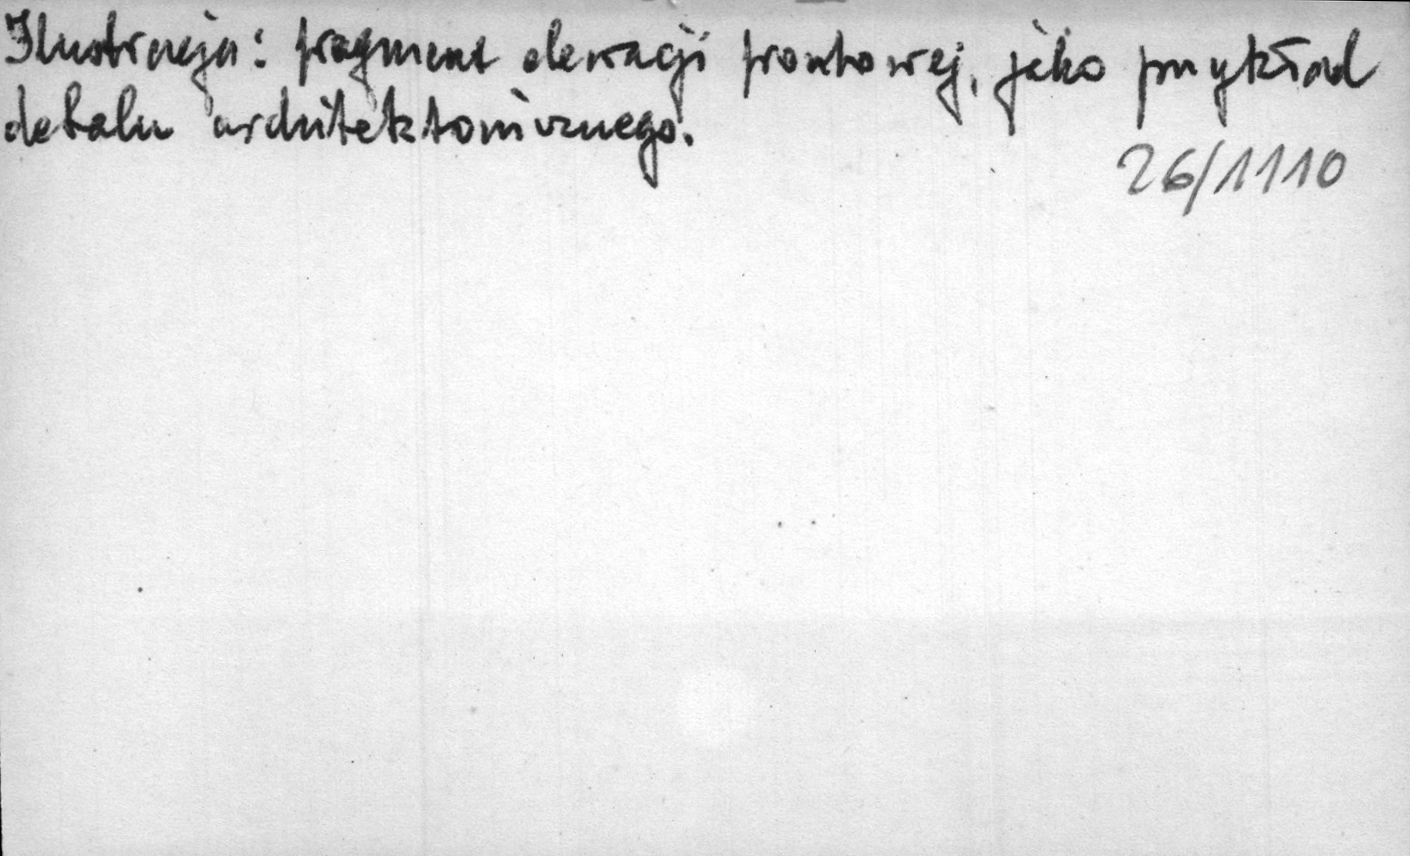 Ilustracja: fragment elewacji frontowej, jako przykład
detalu architektonicznego.
26/1110